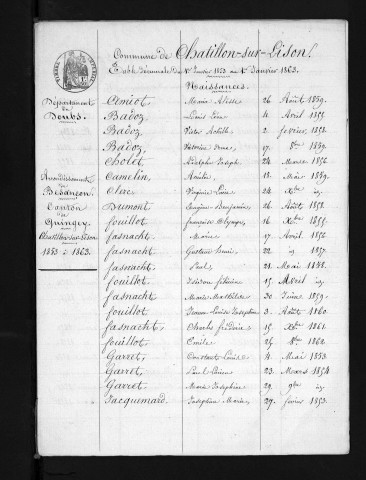 Commune de Chatillon-sur-Lison.
Table Décennale Du 1er Janvier 1853 au 1er Janvier 1863.
Naissances.
Département
du
Doubs.
Arrondissement
de
Besançon.
Canton
de
Quingey.
Chatillon-sur-Lison
1853 à 1863.
Amiot, Marie 26 Août 1859.
Badoz, Louis 4 Avril
Badoz, Victor 2 février 1858.
Badoz, 17. 8bre 1859.
Cholet, Adolphe Joseph 24 Mars 1856
Camelin, 13. Mars 1859.
Clac, Virginie 24 Xbre id.
Dumont, Eugène Benjamin 26 Août 1858.
fouillot, françoise Olympe, 16 Xbre 1855.
fasnacht, Marie 17 Avril 1856
fasnacht, Gustave 22 id. 1857.
fasnacht, Paul, 21 Mai 1858.
fouillot, 15 Avril id.
fasnacht, Marie Mathilde 30 Juin 1859.
fouillot, Louise Joséphine 3 Août 1860.
fasnacht, Charles frédéric 15 Xbre 1861.
fouillot, Emile 25 8bre 1862
Garret, Constant Louis 4 Mai 1853
Garret, Paul 23 Mars 1854
Garret, Marie Joséphine 29 9bre id.
Jacquemard, Joséphine Marie, 27 fevrier 1853.